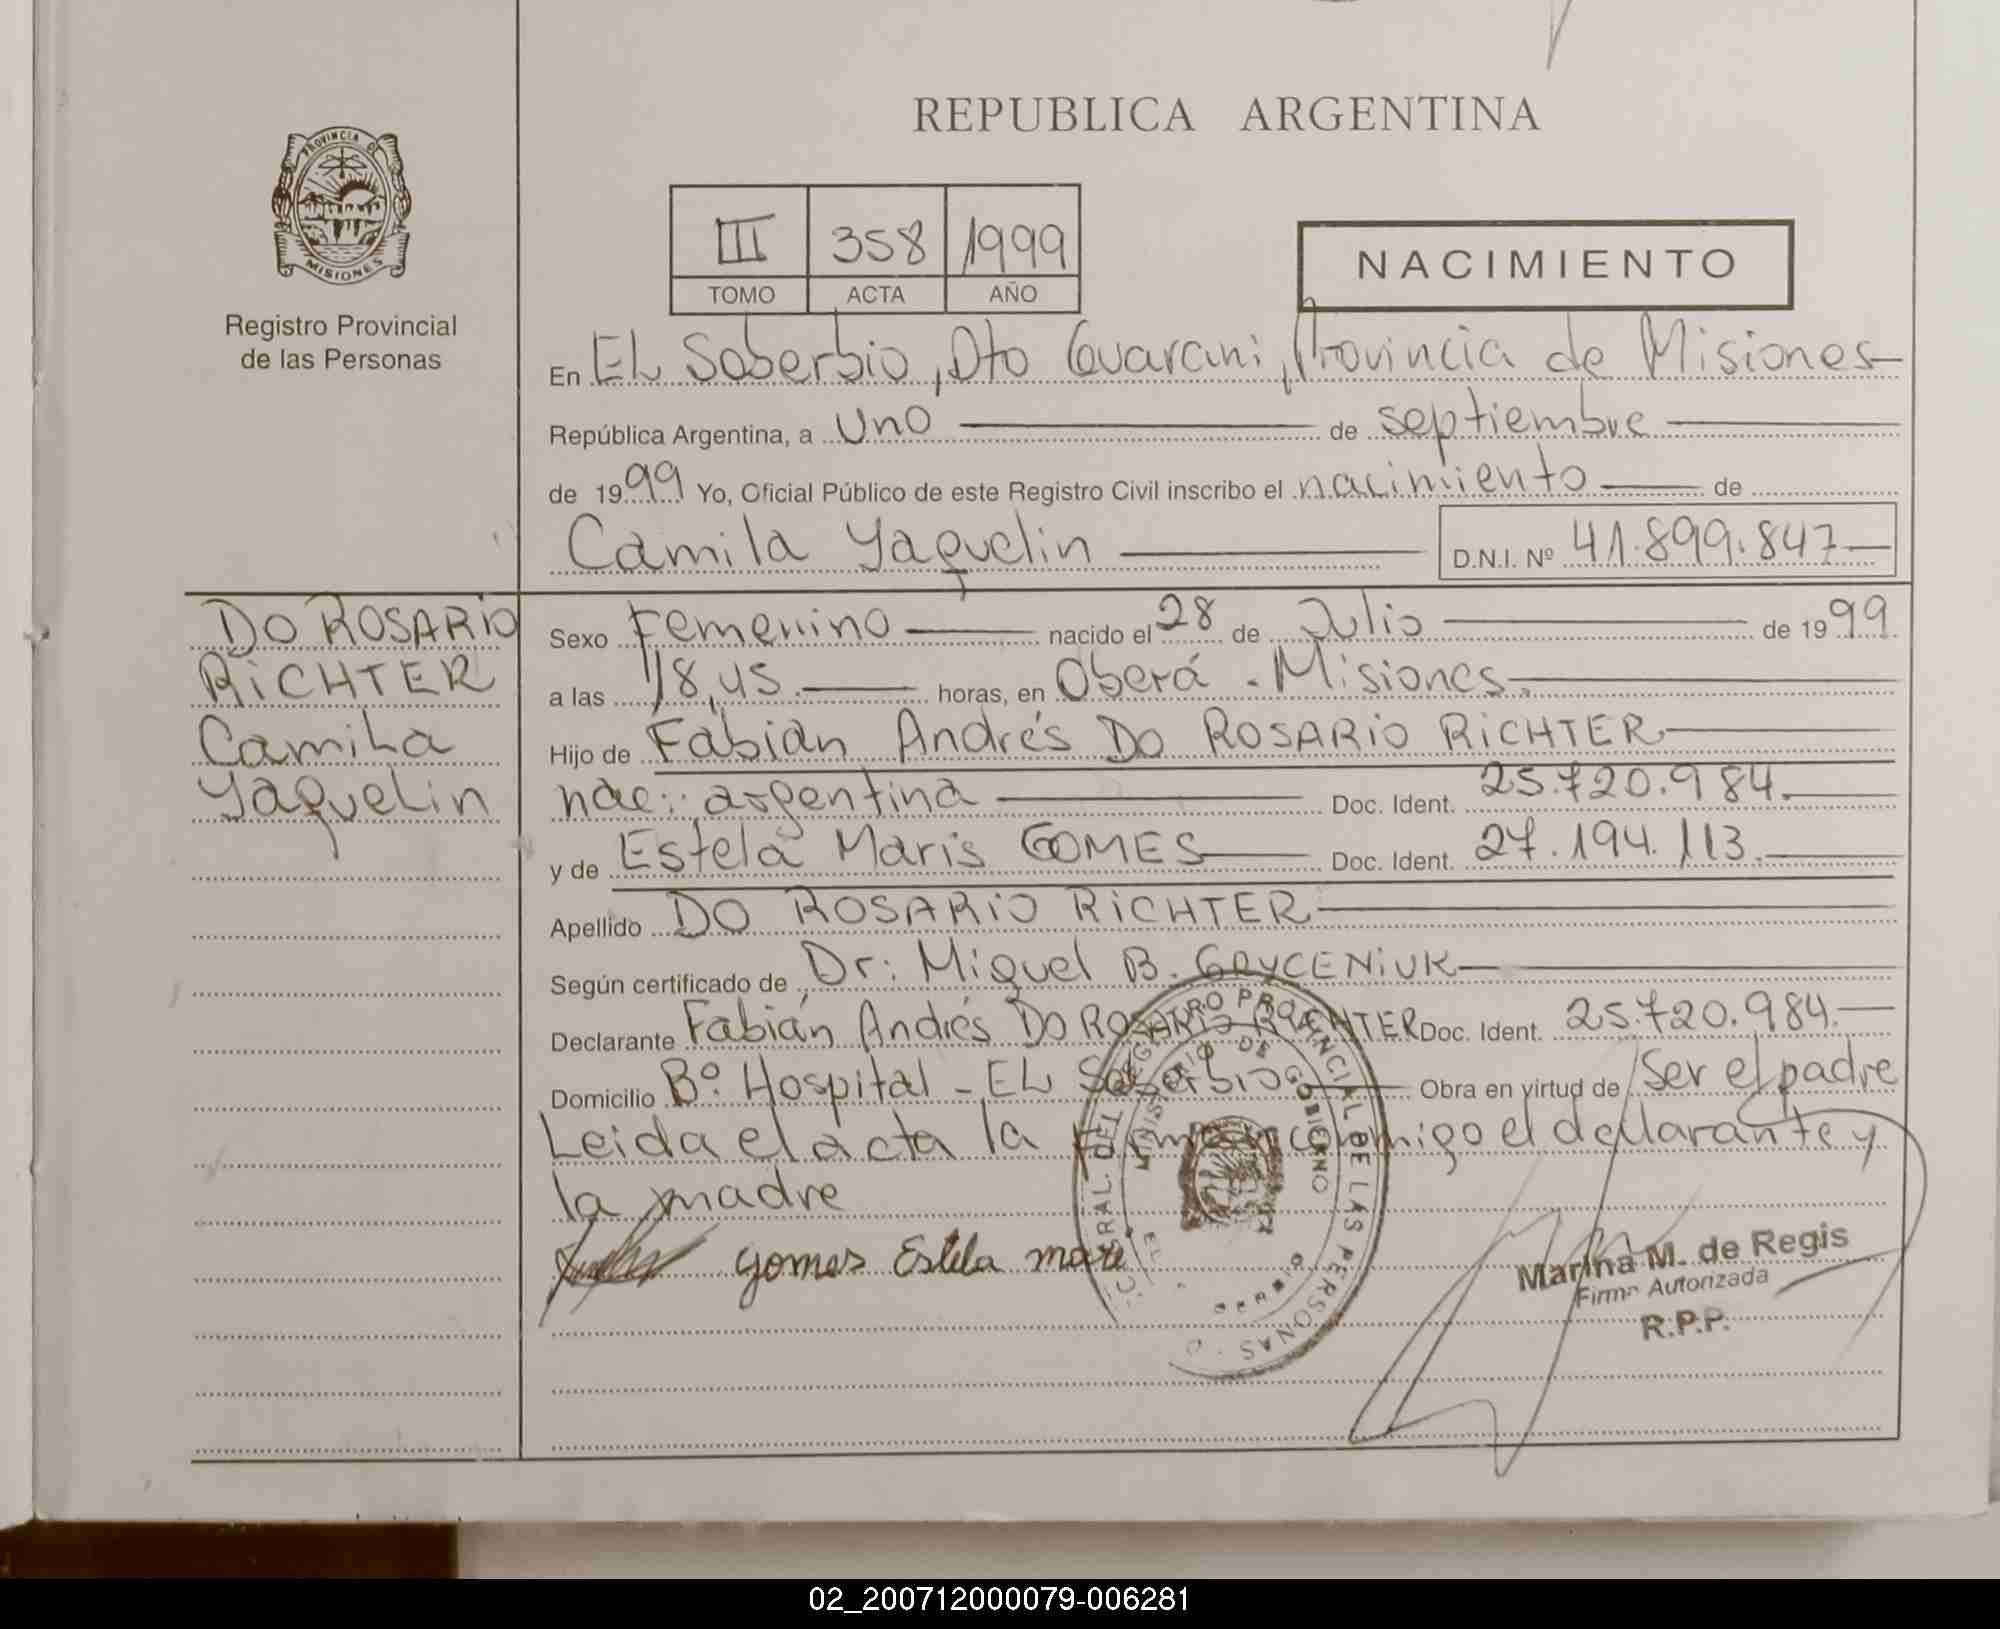 REPUBLICA ARGENTINA
PROVINCIA DE
MISIONES
Registro Provincial
de las Personas
III 358 1999
TOMO ACTA AÑO
NACIMIENTO
En EL Soberbio, Dto Guarani, Provincia de Misiones
República Argentina, a uno de septiembre
de 1999 Yo, Oficial Público de este Registro Civil inscribo el nacimiento de
Camila Yaquelin D.N.I. Nº 41.899.847
DO ROSARIO
RICHTER
Camila
Yaquelin
Sexo Femenino nacido el 28 de Julio de 1999
a las 18,45 horas, en Oberá - Misiones.
Hijo de Fabián Andrés DO ROSARIO RICHTER
nac: argentina Doc. Ident. 25.720.984.
y de Estela Maris GOMES Doc. Ident. 27.194.113.
Apellido DO ROSARIO RICHTER
Según certificado de Dr: Miguel B. GRYCENIUK
Declarante Fabián Andrés DO ROSARIO RICHTER Doc. Ident. 25.720.984.
Domicilio Bº Hospital - EL Soberbio Obra en virtud de Ser el padre
Leida el acta la firman conmigo el declarante y
la madre
Gomes Estela mari
REGISTRO PROVINCIAL DE LAS PERSONAS
MINISTERIO DE GOBIERNO
Marina M. de Regis
Firma Autorizada
R.P.P.
02_200712000079-006281